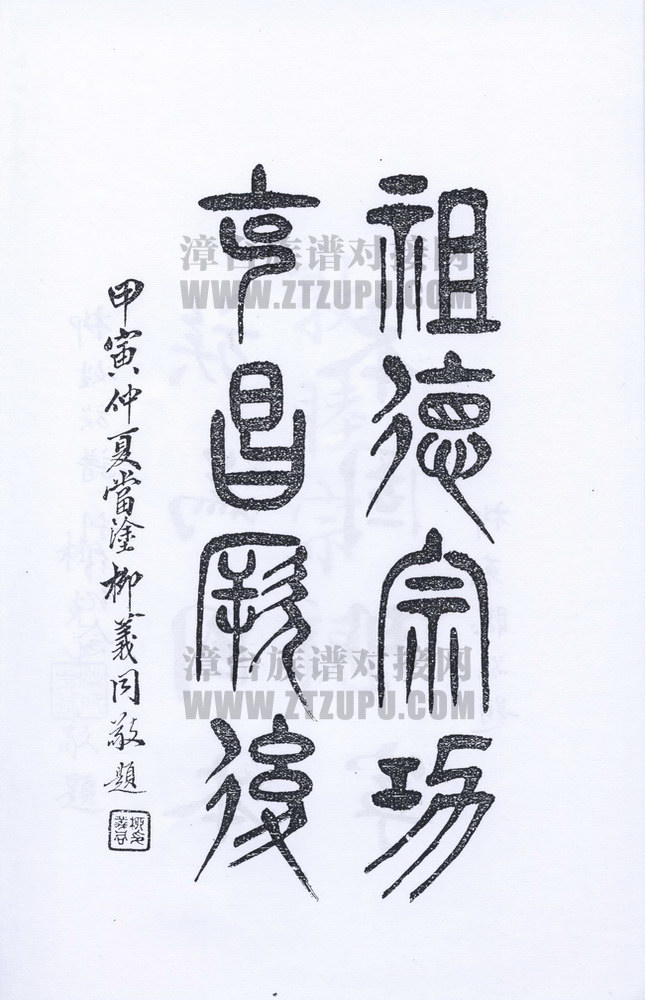 祖德宗功
克昌厥後
甲寅仲夏當塗柳義同敬題
漳台族谱对接网
WWW.ZTZUPU.COM
漳台族谱对接网
WWW.ZTZUPU.COM